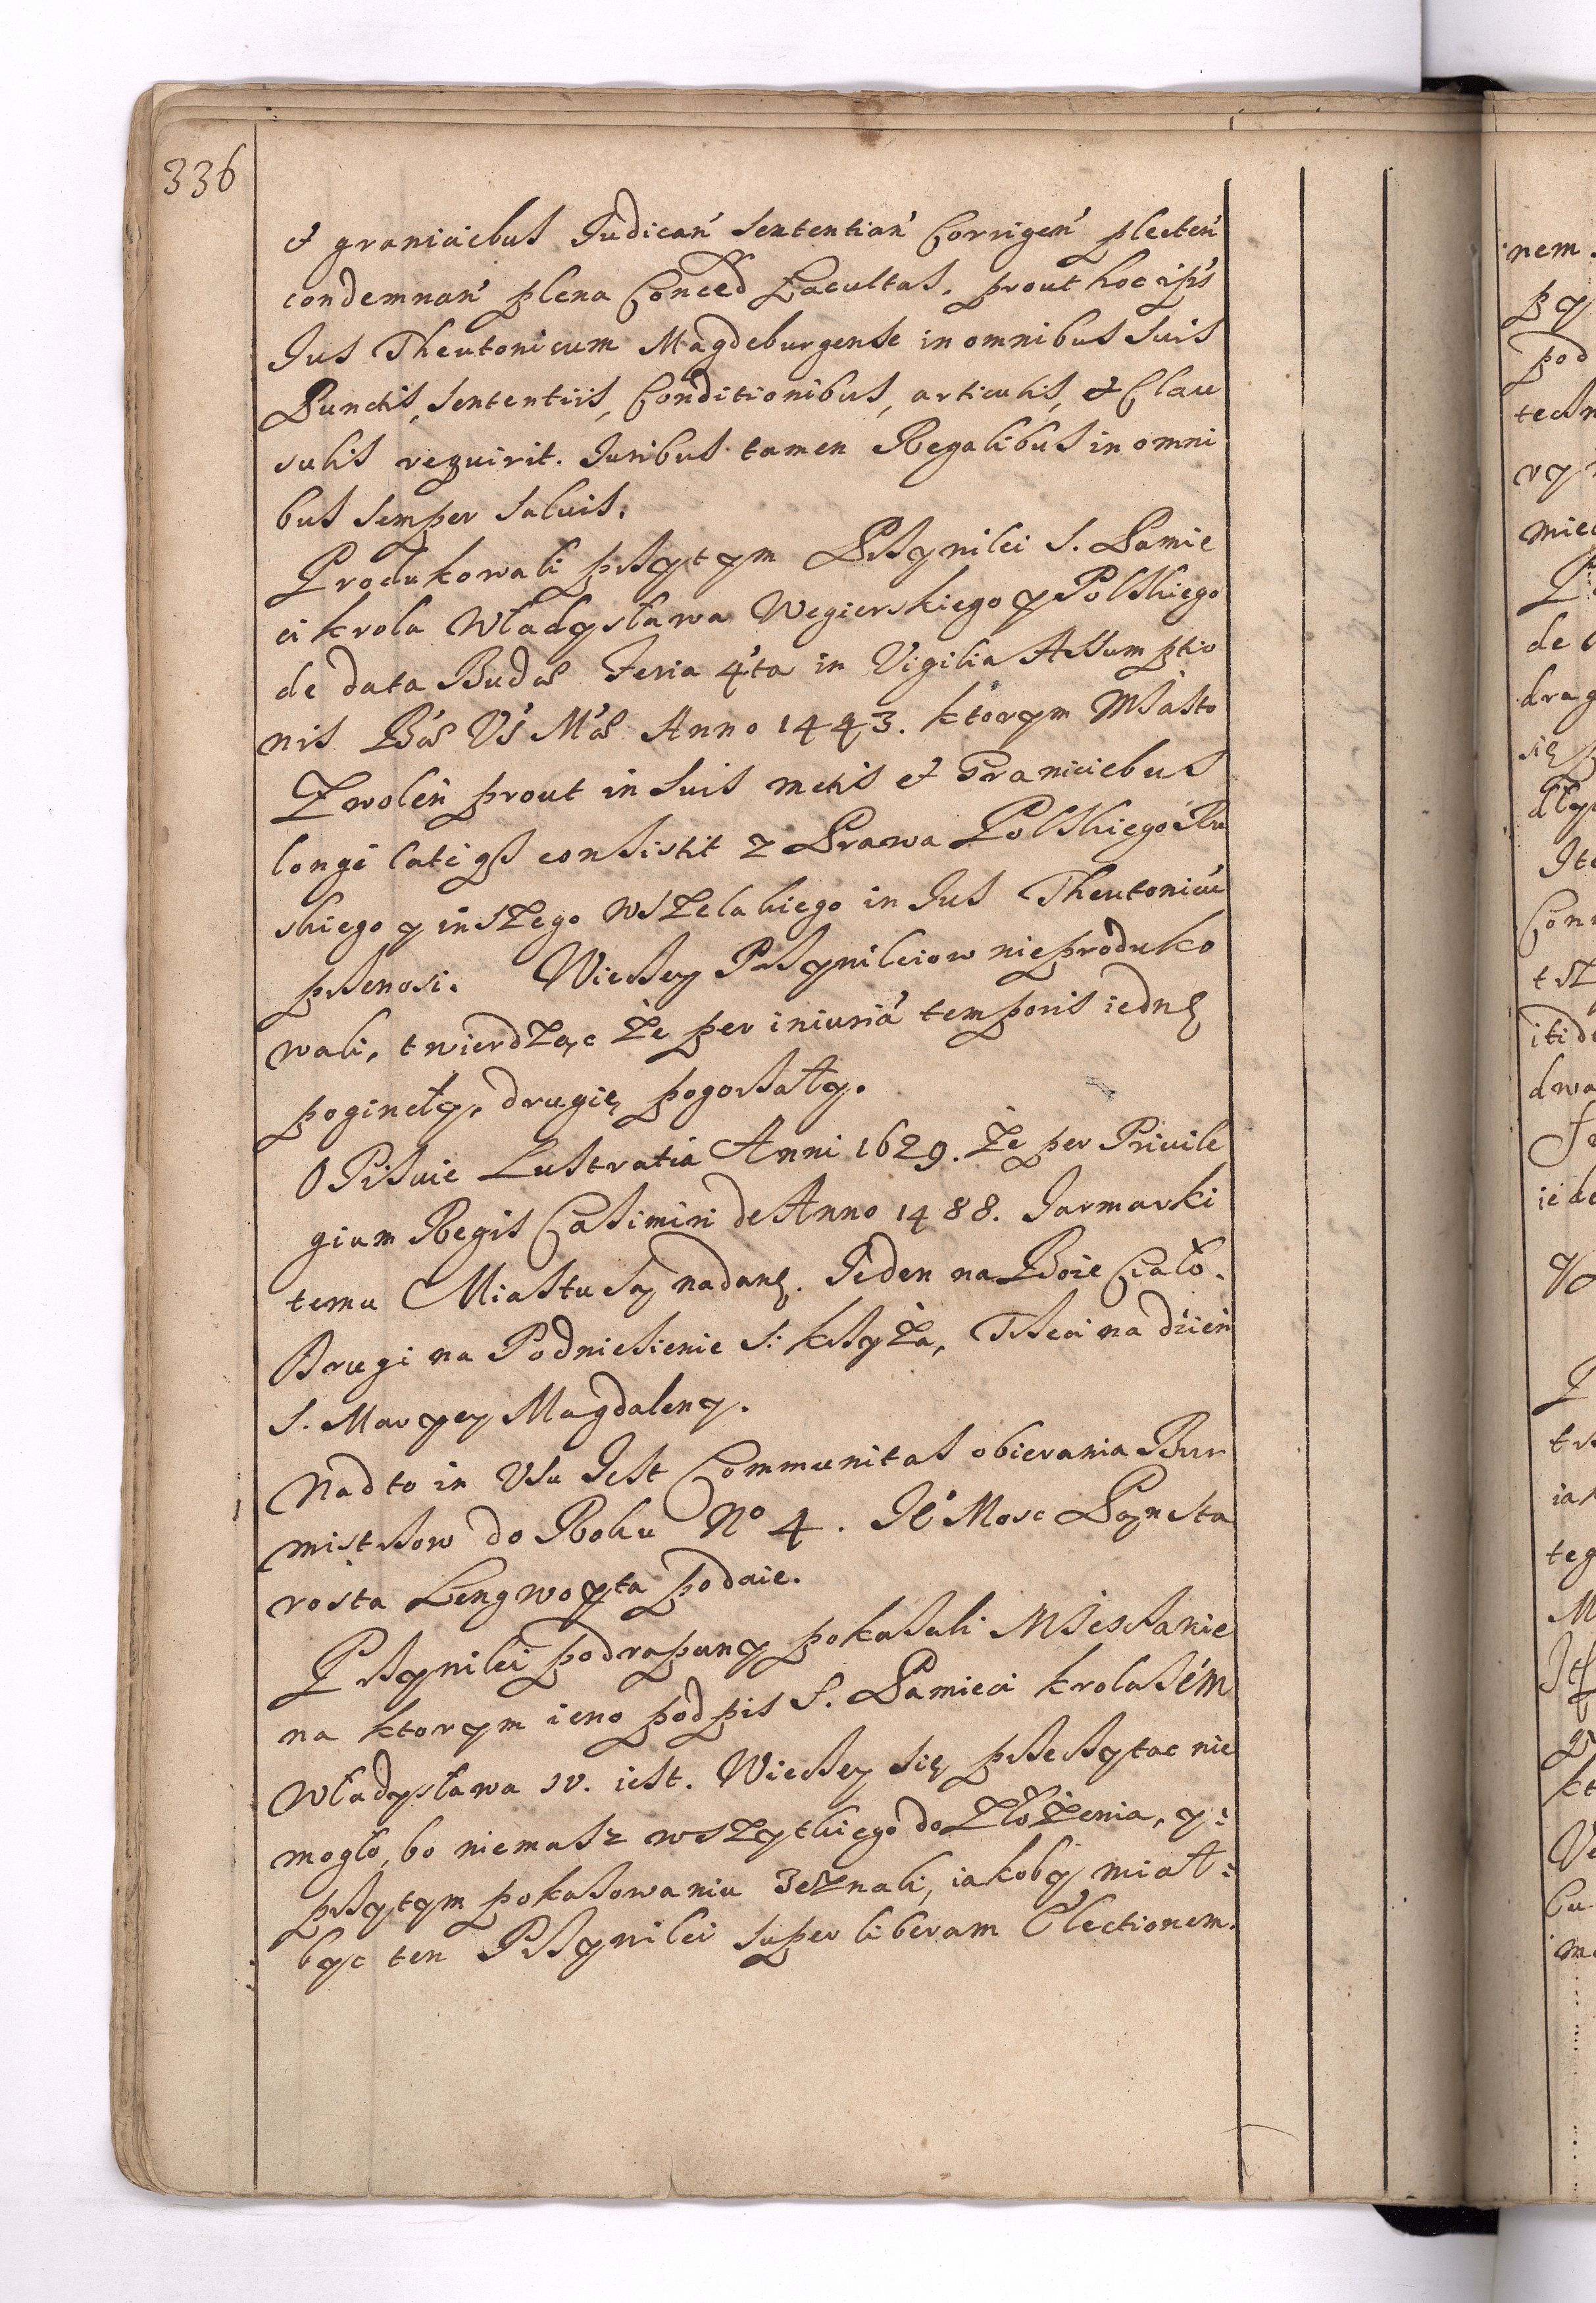 336
et graniciebus Judican' sententian' Corrigen' plecten'
condemnan' plena Conced Facultas. prout hoc ips'
Jus Theutonicum Magdeburgense in omnibus suis
Punctis, sententiis, Conditionibus, articulis, et Clau
sulis requirit. Juribus tamen Regalibus in omni
bus semper saluis.
Produkowali przytym Przywilei S. Pamie
ci krola Władysława Wegierskiego y Polskiego
de data Budæ Feria 4'ta in Vigilia Assumptio
nis B'æ V's M'æ Anno 1443. ktorym Miasto
Zwolen prout in suis metis et Graniciebus
longe late qs consistit z Prawa Polskiego Ru
skiego y inszego wszelakiego in Jus Theutonicu'
przenosi. Wieczey Przywileiow nie produko
wali, twierdząc że per iniuria' temporis iednę
poginęły, drugię pogorzały.
Opisuie Lustratia Anni 1629. że per Privile
gium Regis Casimiri de Anno 1488. Jarmarki
temu Miastu są nadanę. Jeden na Boże Ciało.
Drugi na Podniesienie S: krzyża, Trzeci na dzień
S. Maryey Magdaleny.
Nad to in Usu Jest Communitas obierania Bur
mistrzow do Roku No 4. Je'o Mosc Pan Sta
rosta Lengwoyta podaie.
Przywilei podrapany pokazali Mieszczanie
na ktorym ieno podpis S. Pamieci krola Jem
Władysława IV. iest. Wieczey się przeczytac nie
mogło, bo niemasz wszytkiego do złożenia, y:
przytym pokazowaniu zeznali, iakoby miał:
byc ten Przywilei super liberam Electionem.
nem